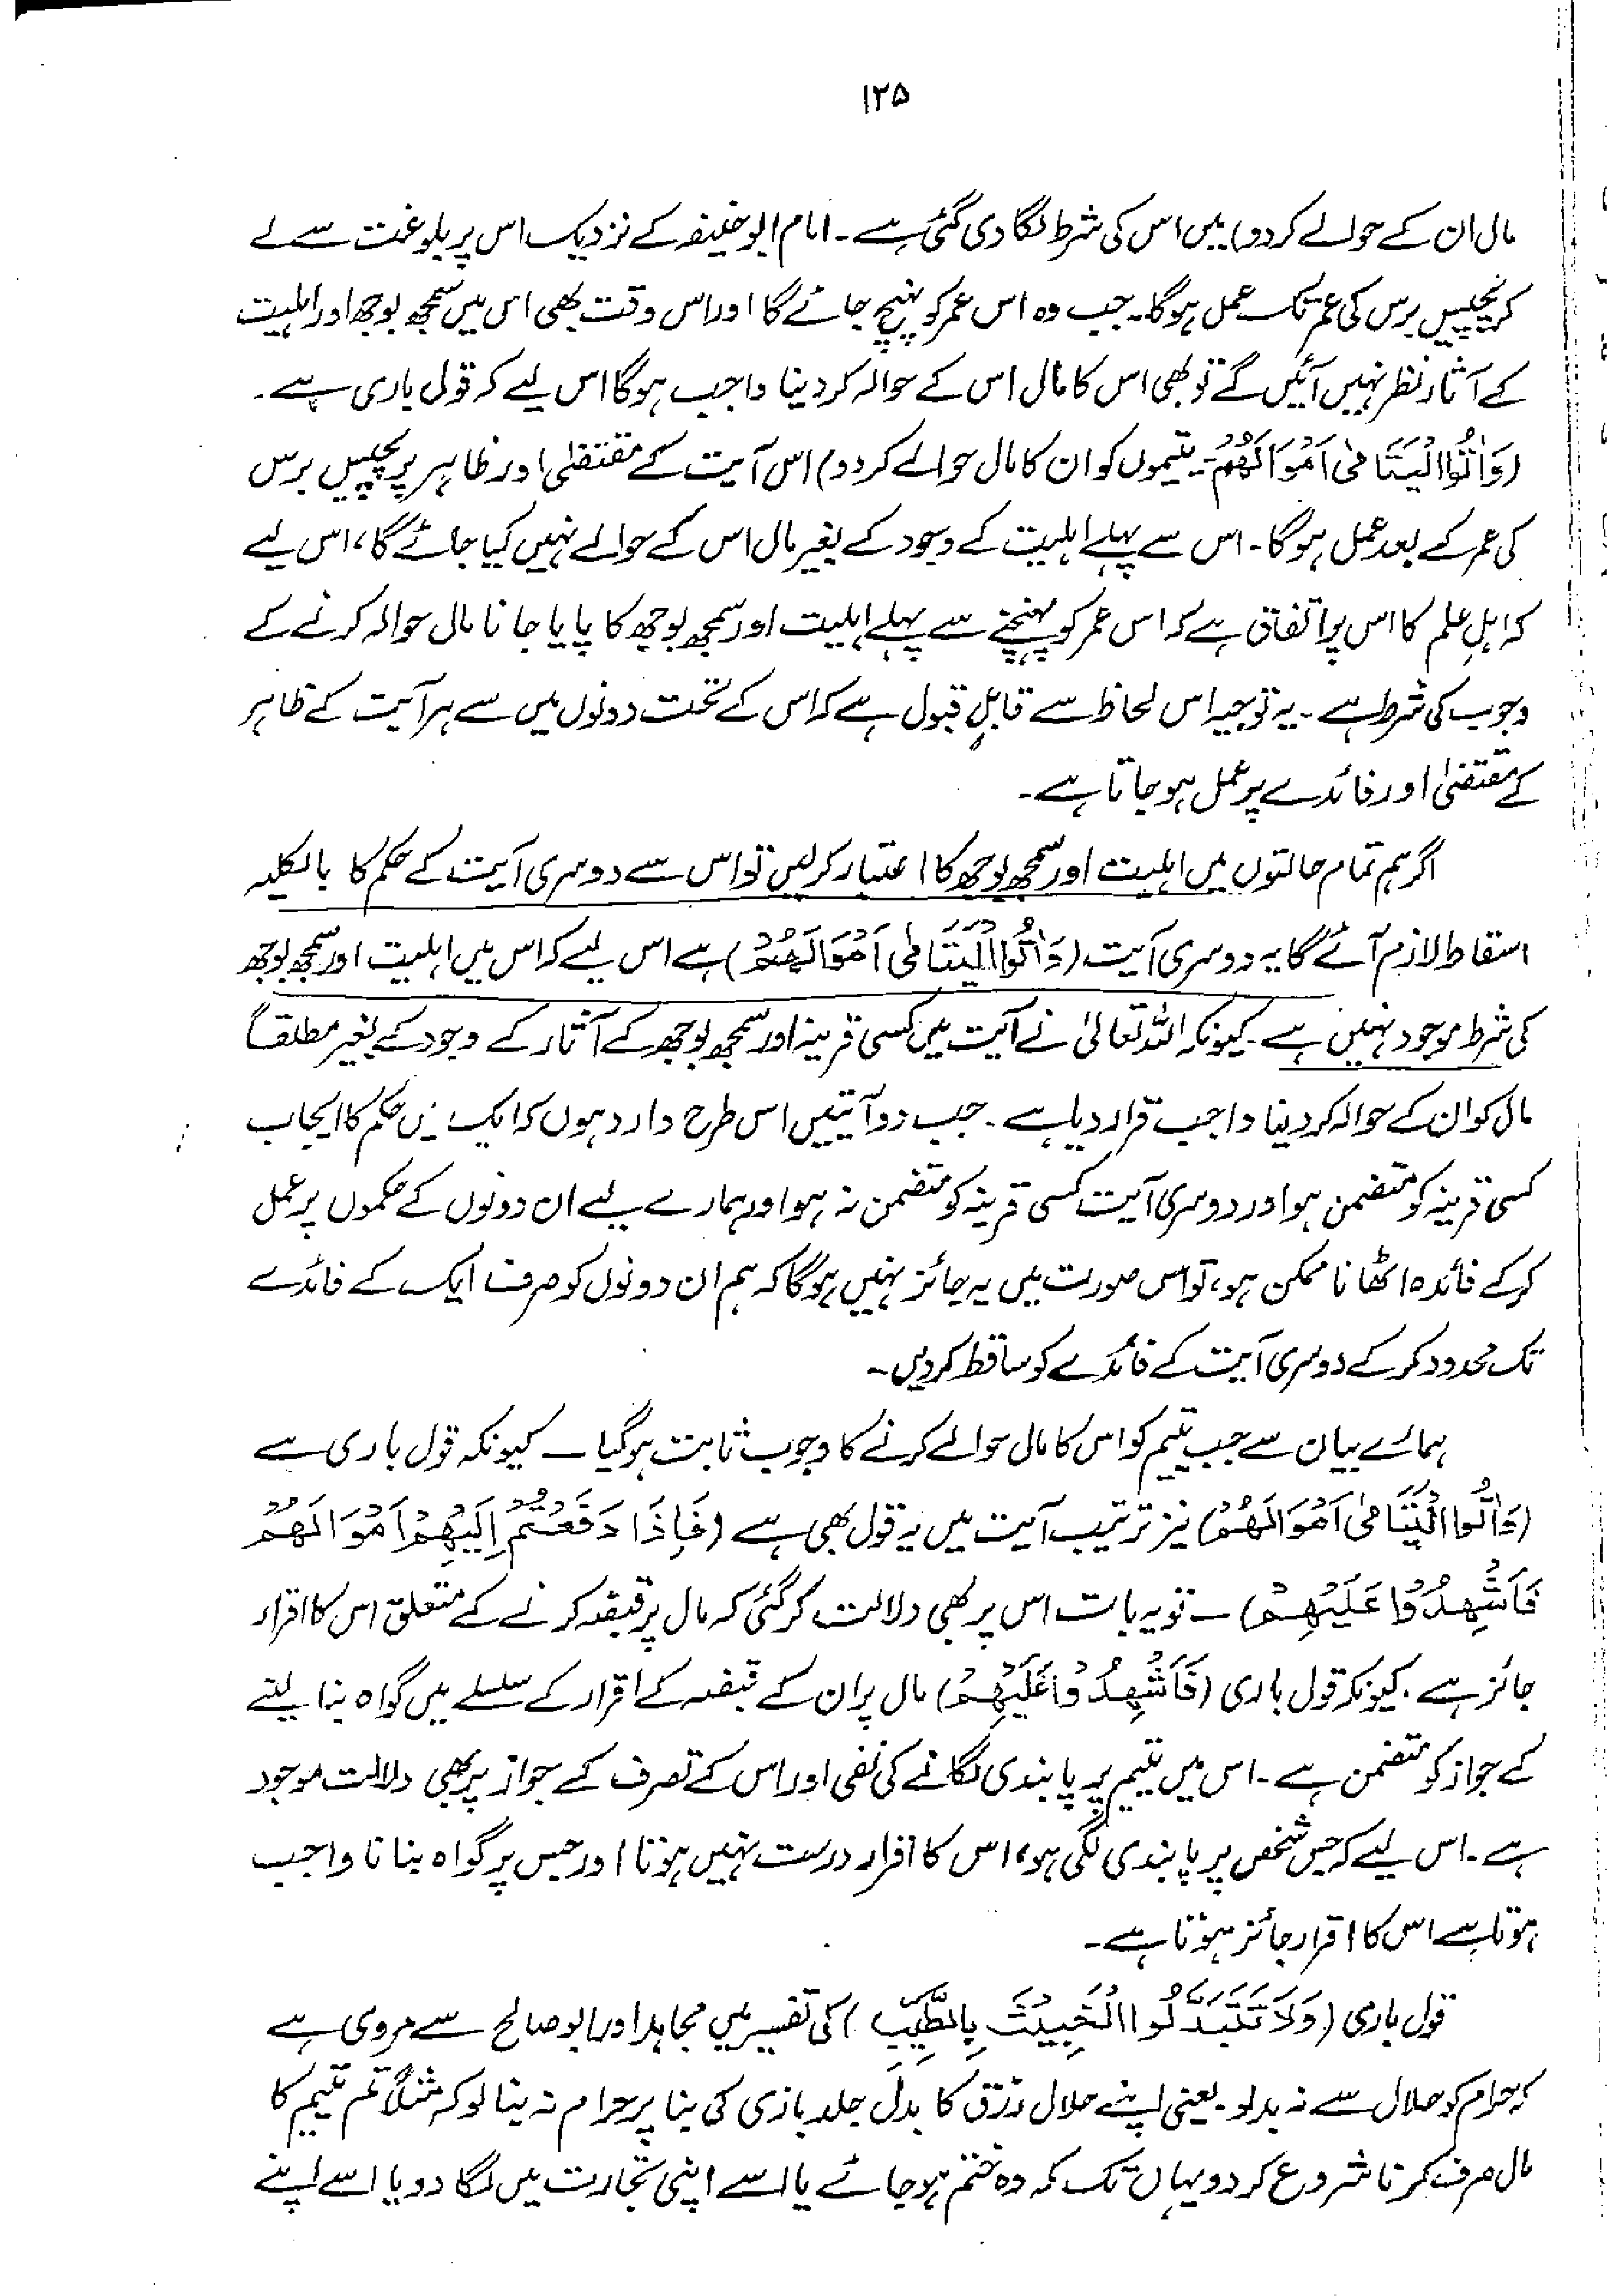 ۱۲۵
مال ان کے حوالے کر دو) میں اس کی شرط لگا دی گئی ہے۔ امام ابو حنیفہ کے نزدیک اس پر بلوغت سے لے
کر پچیس برس کی عمر تک عمل ہوگا۔ جب وہ اس عمر کو پہنچ جائے گا اور اس وقت بھی اس میں سمجھ بوجھ اور اہلیت
کے آثار نظر نہیں آئیں گے تو بھی اس کا مال اس کے حوالہ کر دینا واجب ہوگا اس لیے کہ قول باری ہے۔
(وَاٰتُوا الْیَتَامٰی اَمْوَالَهُمْ۔ یتیموں کو ان کا مال حوالے کر دو) اس آیت کے مقتضٰی اور ظاہر پر پچیس برس
کی عمر کے بعد عمل ہوگا۔ اس سے پہلے اہلیت کے وجود کے بغیر مال اس کے حوالے نہیں کیا جائے گا، اس لیے
کہ اہلِ علم کا اس پر اتفاق ہے کہ اس عمر کو پہنچنے سے پہلے اہلیت اور سمجھ بوجھ کا پایا جانا مال حوالہ کرنے کے
وجوب کی شرط ہے۔ یہ توجیہ اس لحاظ سے قابلِ قبول ہے کہ اس کے تحت دونوں میں سے ہر آیت کے ظاہر
کے مقتضٰی اور فائدے پر عمل ہو جاتا ہے۔
اگر ہم تمام حالتوں میں اہلیت اور سمجھ بوجھ کا اعتبار کر لیں تو اس سے دوسری آیت کے حکم کا بالکلیہ
اسقاط لازم آئے گا یہ دوسری آیت (وَاٰتُوا الْیَتَامٰی اَمْوَالَهُمْ) ہے اس لیے کہ اس میں اہلیت اور سمجھ بوجھ
کی شرط موجود نہیں ہے۔ کیونکہ اللہ تعالیٰ نے آیت میں کسی قرینہ اور سمجھ بوجھ کے آثار کے وجود کے بغیر مطلقاً
مال کو ان کے حوالہ کر دینا واجب قرار دیا ہے۔ جب دو آیتیں اس طرح وارد ہوں کہ ایک میں حکم کا ایجاب
کسی قرینہ کو متضمن ہو اور دوسری آیت کسی قرینہ کو متضمن نہ ہو اور ہمارے لیے ان دونوں کے حکموں پر عمل
کر کے فائدہ اٹھانا ممکن ہو، تو اس صورت میں یہ جائز نہیں ہوگا کہ ہم ان دونوں کو صرف ایک کے فائدے
تک محدود کر کے دوسری آیت کے فائدے کو ساقط کر دیں۔
ہمارے بیان سے جب یتیم کو اس کا مال حوالے کرنے کا وجوب ثابت ہو گیا ۔ کیونکہ قول باری ہے
(وَاٰتُوا الْیَتَامٰی اَمْوَالَهُمْ) نیز ترتیب آیت میں یہ قول بھی ہے (فَاِذَا دَفَعْتُمْ اِلَیْهِمْ اَمْوَالَهُمْ
فَاَشْهِدُوْا عَلَیْهِمْ) ۔ تو یہ بات اس پر بھی دلالت کر گئی کہ مال پر قبضہ کرنے کے متعلق اس کا اقرار
جائز ہے۔ کیونکہ قول باری (فَاَشْهِدُوْا عَلَیْهِمْ) مال پر ان کے قبضہ کے اقرار کے سلسلے میں گواہ بنا لینے
کے جواز کو متضمن ہے۔ اس میں یتیم پر پابندی لگانے کی نفی اور اس کے تصرف کے جواز پر بھی دلالت موجود
ہے۔ اس لیے کہ جس شخص پر پابندی لگی ہو، اس کا اقرار درست نہیں ہوتا اور جس پر گواہ بنانا واجب
ہوتا ہے اس کا اقرار جائز ہوتا ہے۔
قول باری (وَلَا تَتَبَدَّلُوا الْخَبِیْثَ بِالطَّیِّبِ) کی تفسیر میں مجاہد اور ابو صالح سے مروی ہے
کہ حرام کو حلال سے نہ بدلو۔ یعنی اپنے حلال رزق کا بدل جلد بازی کی بنا پر حرام نہ بنا لو کہ مثلاً تم یتیم کا
مال صرف کرنا شروع کر دو یہاں تک کہ وہ ختم ہو جائے یا اسے اپنی تجارت میں لگا دو یا اسے اپنے